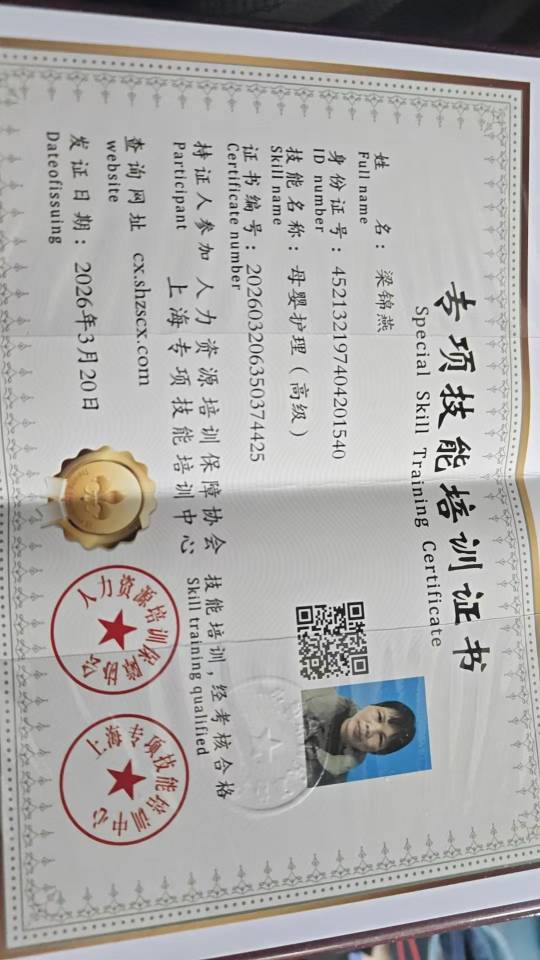 专项技能培训证书
Special Skill Training Certificate
姓 名：梁锦燕
Full name
身份证号：452132197404201540
ID number
技能名称：母婴护理（高级）
Skill name
证书编号：202603206350374425
Certificate number
持证人参加 人力资源培训保障协会 技能培训，经考核合格
上海专项技能培训中心
Participant
Skill training qualified
查询网址 cx.shzscx.com
website
发证日期：2026年3月20日
Dateofissuing
人力资源培训保障协会
上海专项技能培训中心